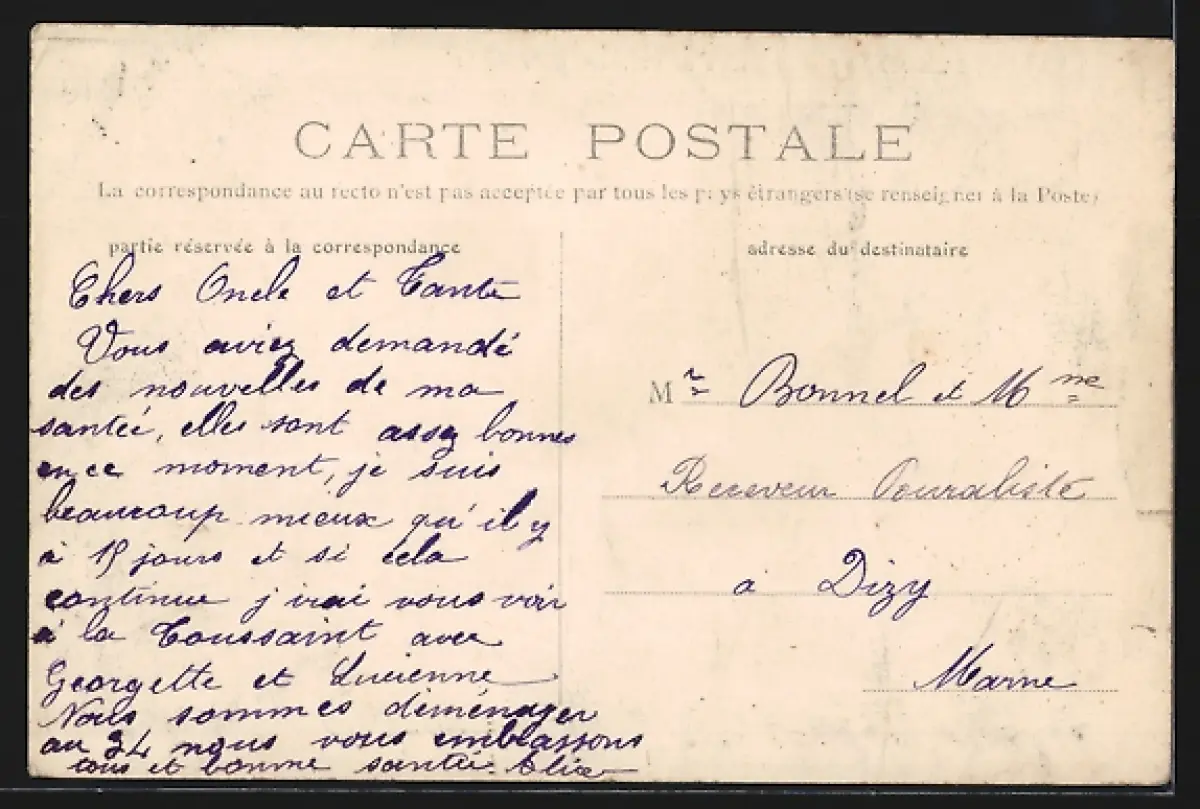 CARTE POSTALE
La correspondance au recto n'est pas acceptée par tous les pays étrangers (se renseigner à la Poste)
partie réservée à la correspondance
Chers Oncle et Tante
Vous aviez demandé
des nouvelles de ma
santée, elles sont assez bonnes
en ce moment, je suis
beaucoup mieux qu'il y
à 15 jours et si cela
continue j'irai vous voir
à la Toussaint avec
Georgette et Lucienne
Nous sommes déménager
au 34 nous vous emblassons
tous et bonne santée.
adresse du destinataire
Mr Bonnel et Mme
Receveur Buraliste
à Dizy
Marne